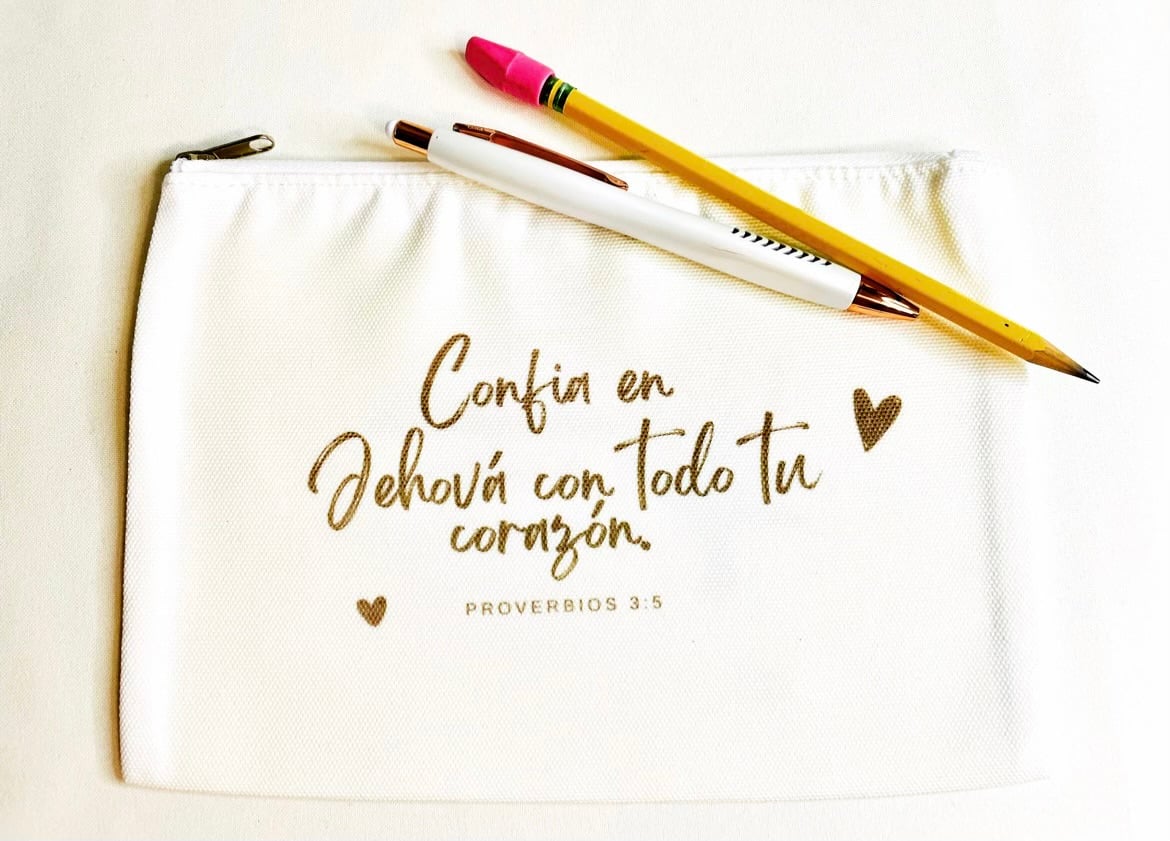 Confia en
Jehová con todo tu
corazón.
PROVERBIOS 3:5